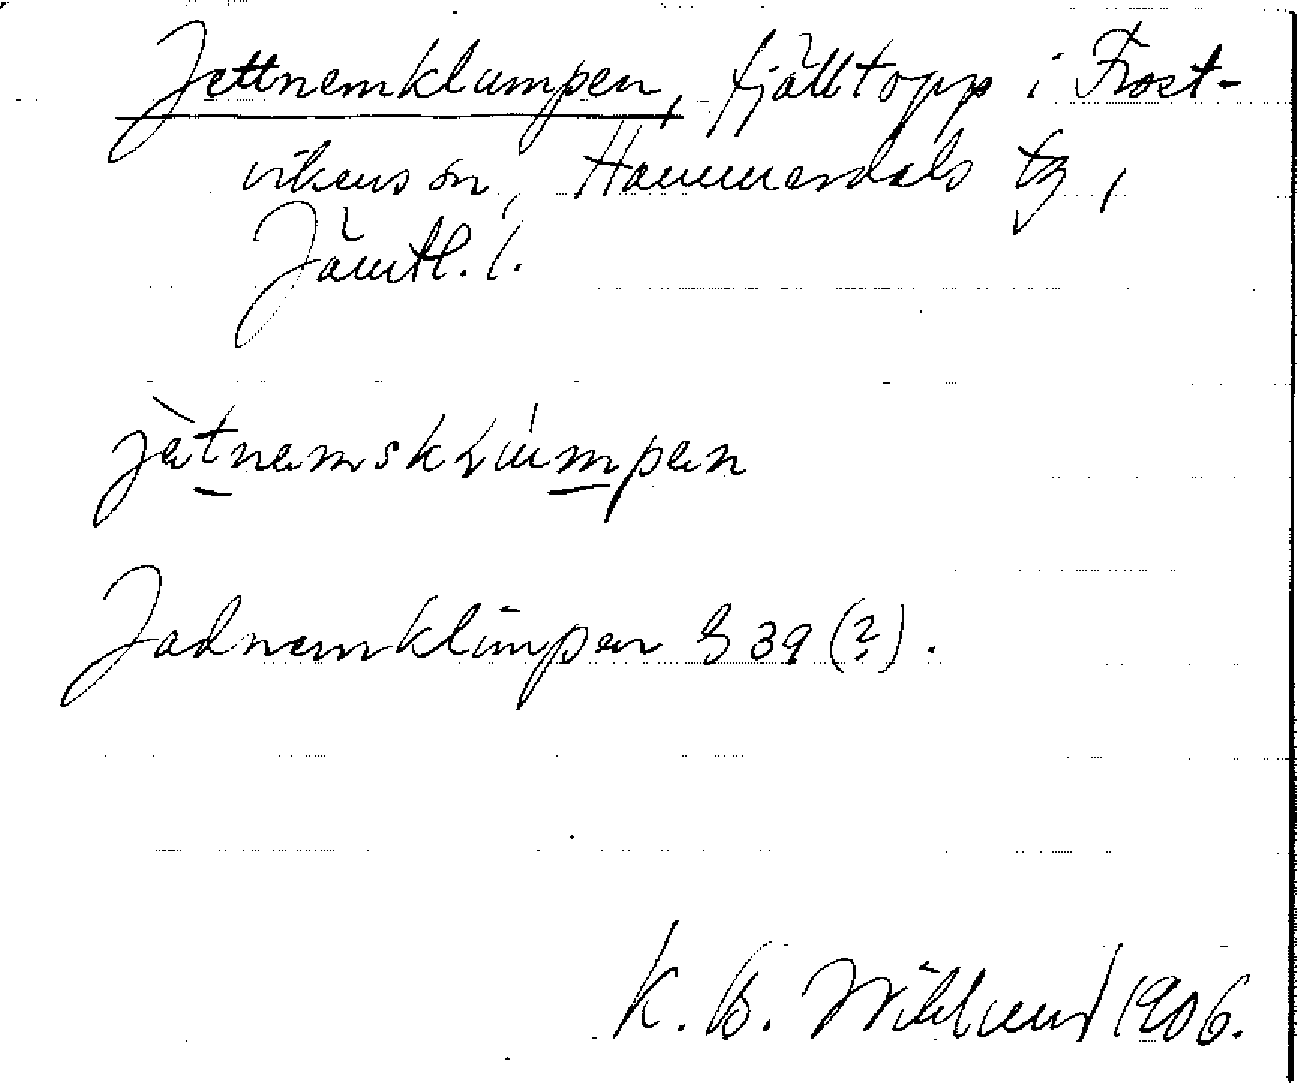 Jettnemklumpen, fjälltopp i Frost-
vikens sn, Hammerdals tg,
Jämtl. l.
jètnemsklúmpen
Jadnemklumpen G 39 (?).
K. B. Wiklund 1906.